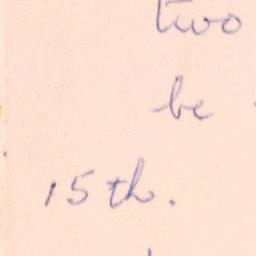 two
be
15th.